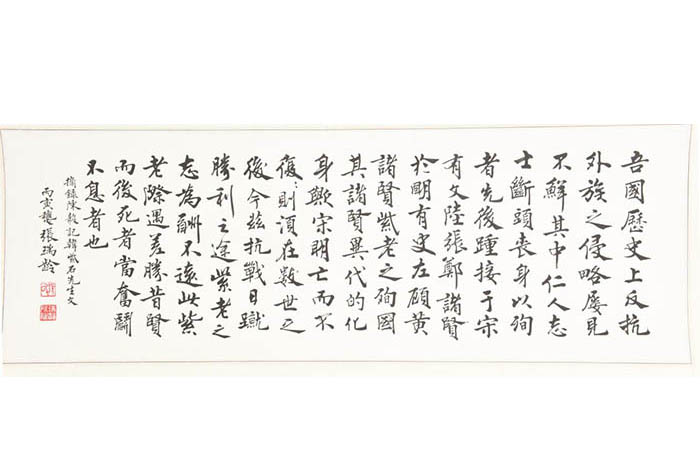 吾國歷史上反抗
外族之侵略屡見
不鮮其中仁人志
士斷頭喪身以殉
者先後踵接于宋
有文陸張鄭諸賢
於明有史左顧黄
諸賢紫老之殉國
其諸賢異代的化
身歟宋明亡而不
復則須在数世之
後今兹抗戰日蹴
勝利之途紫老之
志為酬不遠此紫
老際遇差勝昔賢
而後死者當奮鬪
不息者也
摘錄陳毅記韓紫石先生文
丙寅龝張瑞齡